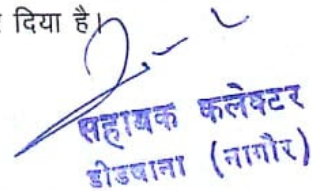 दिया है।
सहायक कलेक्टर
डीडवाना (नागौर)